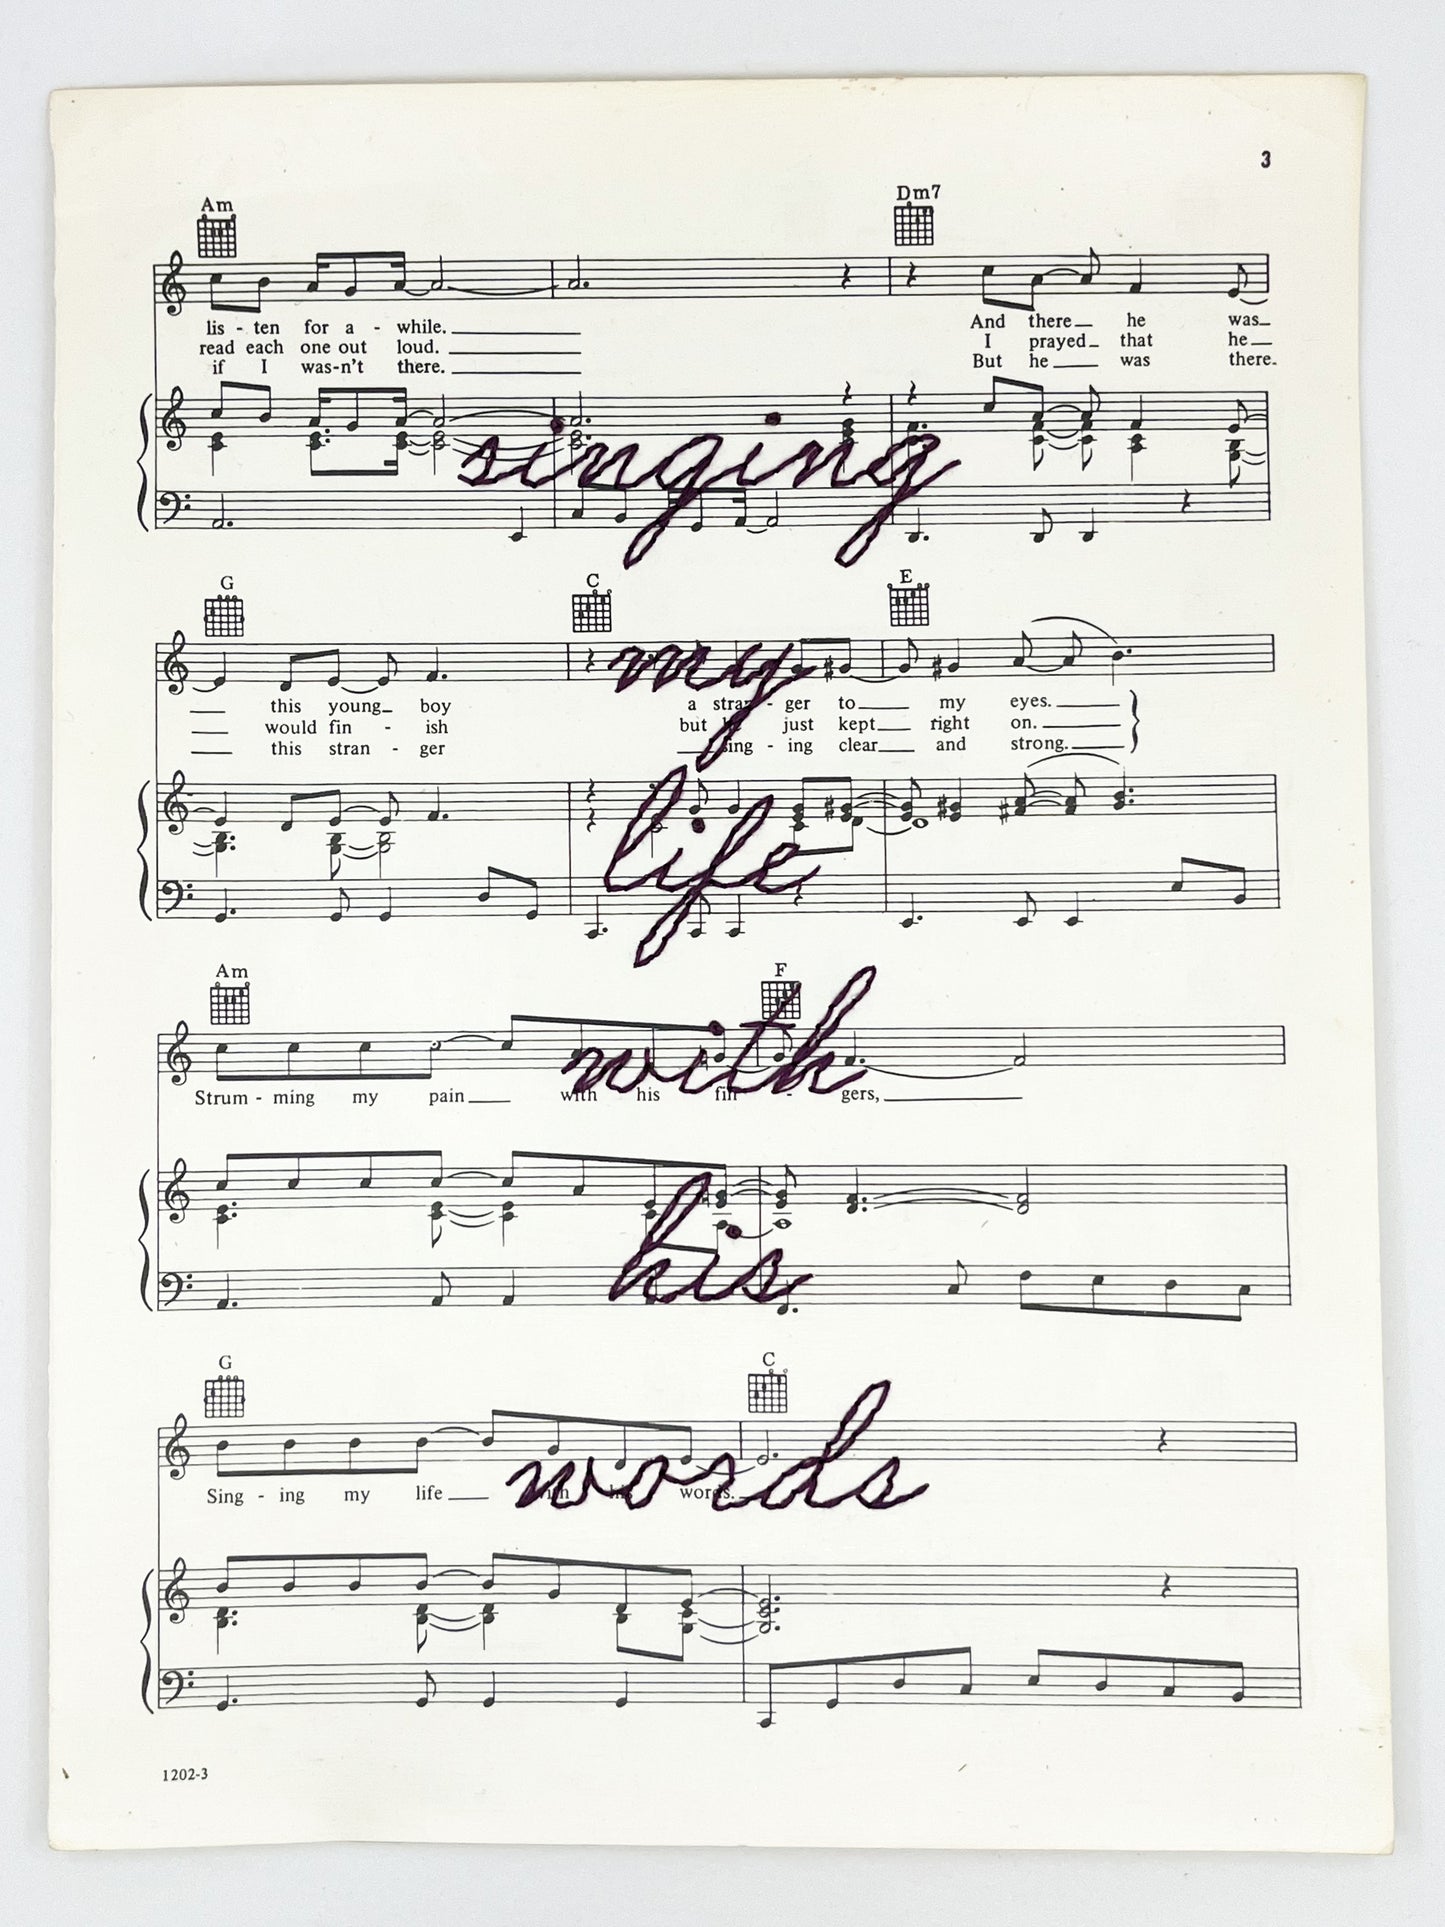 3
Am Dm7
lis - ten for a - while. And there he was
read each one out loud. I prayed that he
if I was-n't there. But he was there.
singing
G C E
this young boy a stran - ger to my eyes.
would fin - ish but he just kept right on.
this stran - ger sing - ing clear and strong.
my
life
Am F
with
Strum - ming my pain with his fin - gers,
his
G C
words
Sing - ing my life with his words.
1202-3